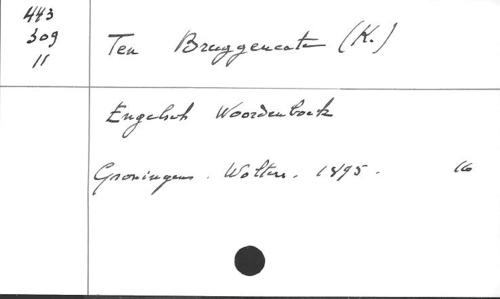 443
309
11
Ten Bruggencate (K.)
Engelsch Woordenboek
Groningen. Wolters. 1895. 16